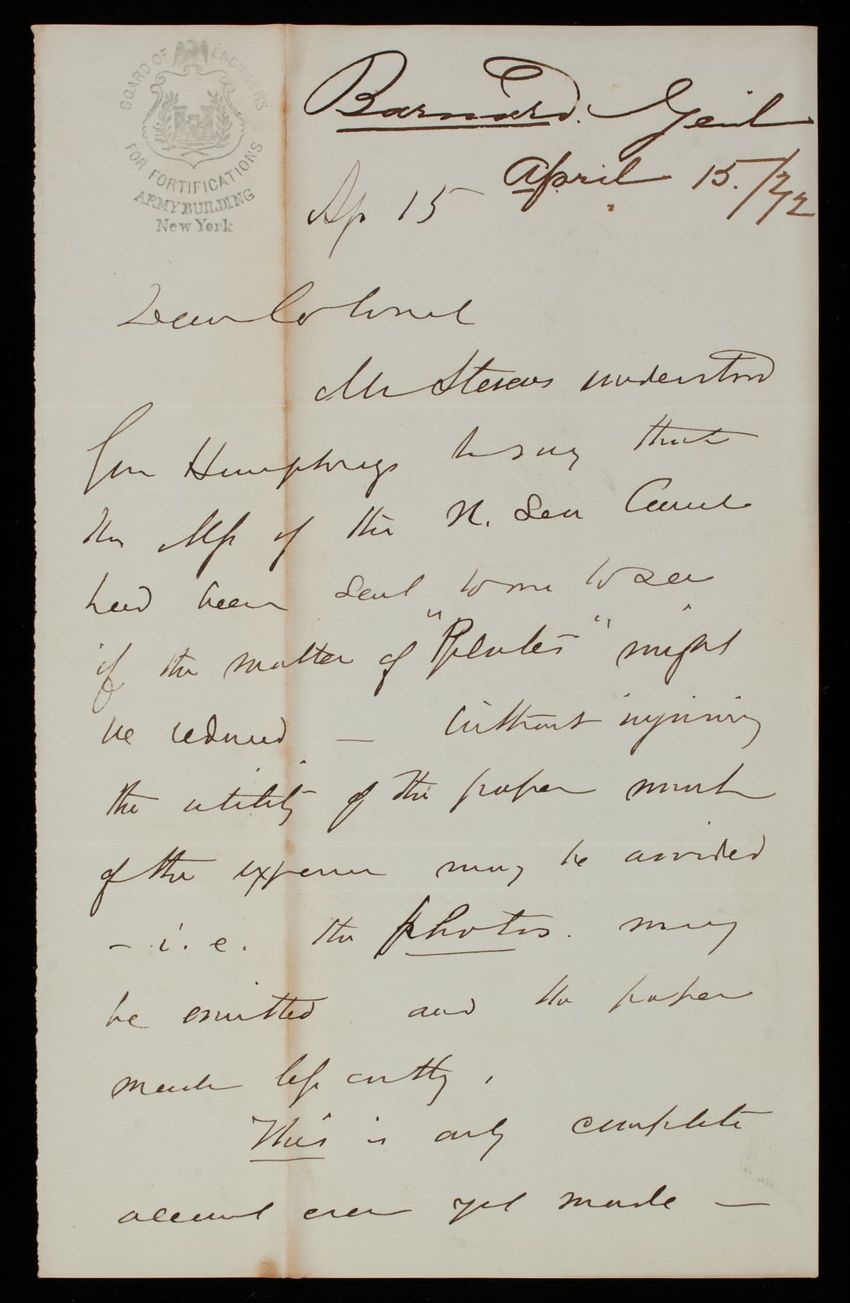 BOARD OF ENGINEERS
FOR FORTIFICATIONS
ARMY BUILDING
New York
Barnard. Genl
April 15. /72
Ap 15
Dear Colonel
Mr Stevens understood
Gen Humphreys to say that
the Mss of the N. Sea Canal
had been sent to me to see
if the matter of "Plates" might
be reduced — Without injuring
the utility of the paper much
of the expense may be avoided
- i.e. the photos. may
be omitted and the paper
made less costly.
This is only complete
account ever yet made —